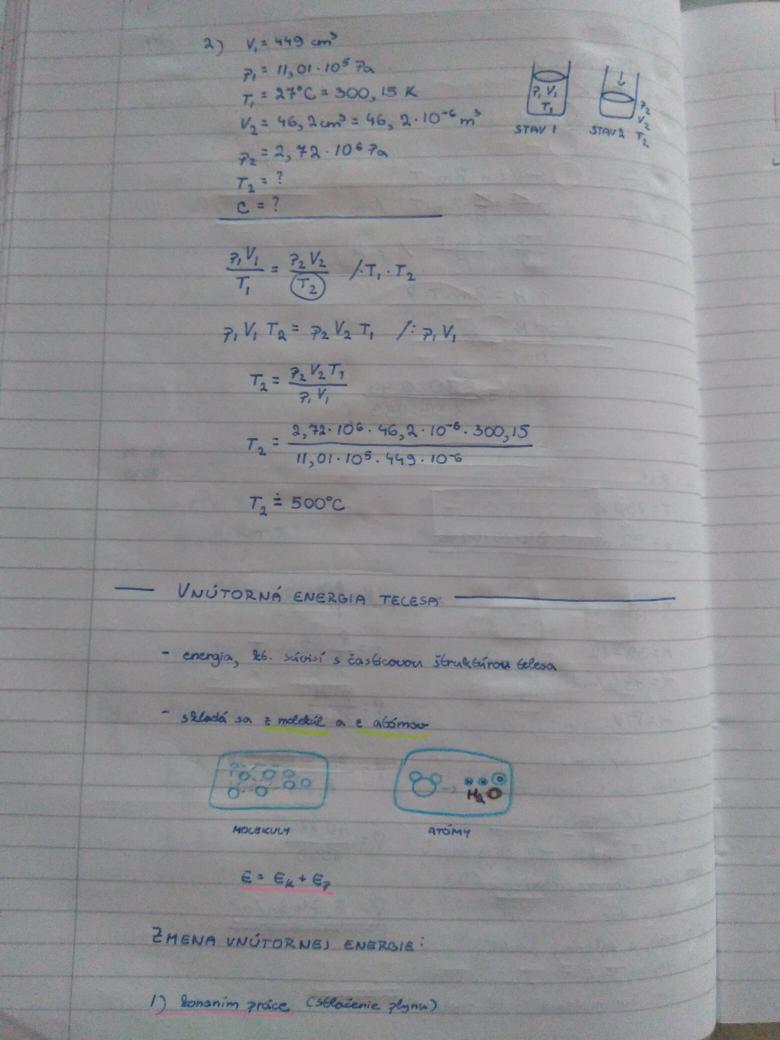 2) V₁ = 449 cm³
p₁ = 11,01 · 10⁵ Pa
T₁ = 27°C = 300,15 K
V₂ = 46,2 cm³ = 46,2 · 10⁻⁶ m³
p₂ = 2,72 · 10⁶ Pa
T₂ = ?
C = ?
p₁ V₁ T₁
STAV 1
p₂ V₂ T₂
STAV 2
p₁V₁ / T₁ = p₂V₂ / T₂ /· T₁ · T₂
p₁ V₁ T₂ = p₂ V₂ T₁ /: p₁ V₁
T₂ = p₂ V₂ T₁ / p₁ V₁
T₂ = 2,72 · 10⁶ · 46,2 · 10⁻⁶ · 300,15 / 11,01 · 10⁵ · 449 · 10⁻⁶
T₂ ≐ 500°C
VNÚTORNÁ ENERGIA TELESA
- energia, kt. súvisí s časticovou štruktúrou telesa
- skladá sa z molekúl a z atómov
H₂O
MOLEKULY ATÓMY
E = Eₖ + Eₚ
ZMENA VNÚTORNEJ ENERGIE:
1) konaním práce (stlačenie plynu)